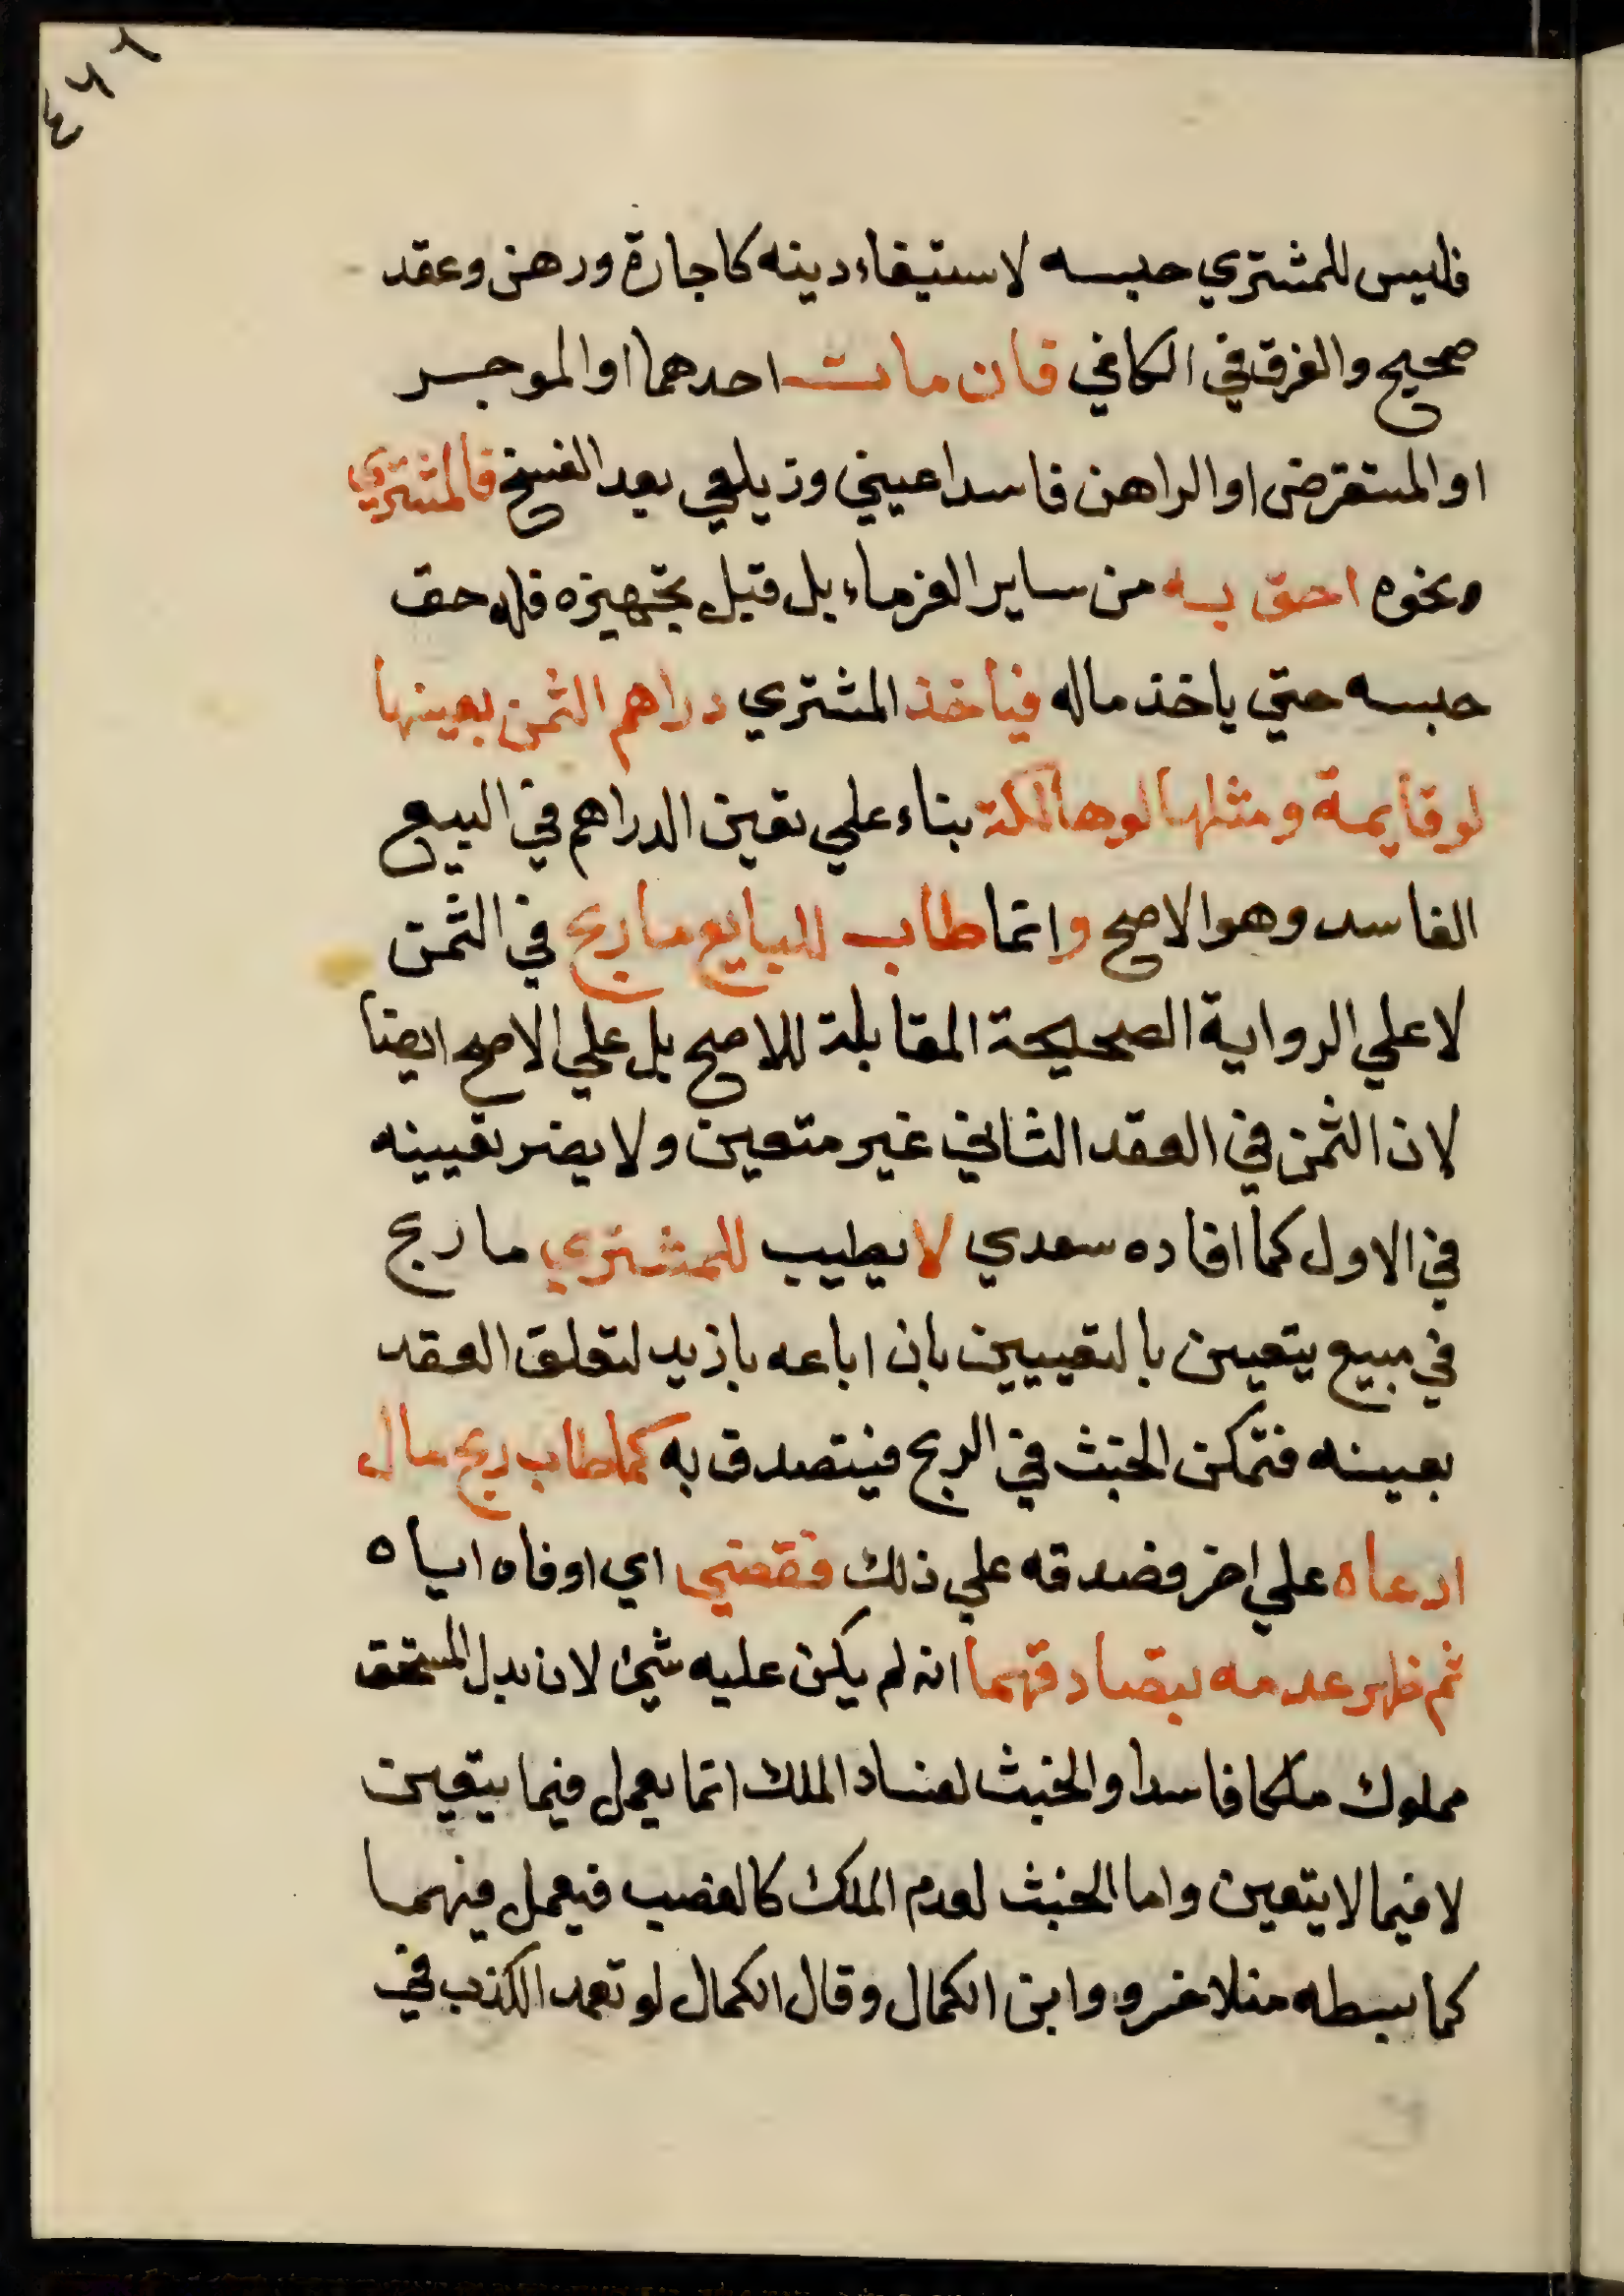 فليس للمشتري حبسه لاستيفاء دينه كاجارة ورهن وعقد
صحيح والفرق في الكافي فان مات احدهما او الموجر
او المستقرض او الراهن فاسدا عيني وزيلعي بعد الفسخ فالمشتري
ونحوه احق به من ساير الغرماء بل قبل تجهيزه فله حق
حبسه حتي ياخذ ماله فياخذ المشتري دراهم الثمن بعينها
لو قايمة ومثلها لو هالكة بناء علي تعين الدراهم في البيع
الفاسد وهو الاصح وانما طاب للبايع ما ربح في الثمن
لا علي الرواية الصحيحة المقابلة للاصح بل علي الاصح ايضا
لان الثمن في العقد الثاني غير متعين ولا يضر تعيينه
في الاول كما افاده سعدي لا يطيب للمشتري ما ربح
في مبيع يتعين بالتعيين بان اباعه بازيد لتعلق العقد
بعينه فتمكن الخبث في الربح فيتصدق به كما طاب ربح مال
ادعاه علي اخر فصدقه علي ذلك فقضي اي اوفاه اياه
ثم ظهر عدمه بتصادقهما انه لم يكن عليه شيئ لان بدل المستحق
مملوك ملكا فاسدا والخبث لفساد الملك انما يعمل فيما يتعين
لا فيما لا يتعين واما الخبث لعدم الملك كالغصب فيعمل فيهما
كما بسطه منلا خسرو وابن الكمال وقال الكمال لو تعمد الكذب في